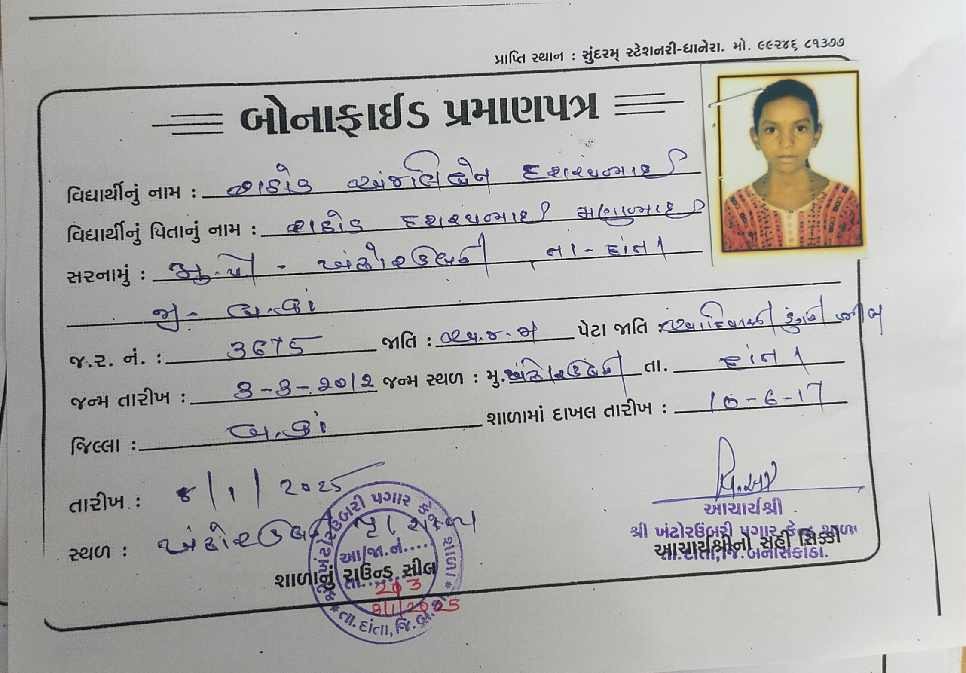 પ્રાપ્તિ સ્થાન : સુંદરમ્ સ્ટેશનરી-ધાનેરા. મો. ૯૯૨૪૬ ૮૧૩૭૭
બોનાફાઈડ પ્રમાણપત્ર
વિદ્યાર્થીનું નામ : રાઠોડ અંજલિબેન દશરથભાઈ
વિદ્યાર્થીનું પિતાનું નામ : રાઠોડ દશરથભાઈ
સરનામું : મુ. પો - ખંઢોરઉંબરી, તા - દાંતા
જી - બ.કાં
જ.ર. નં. : 3675 જાતિ : અ.જ.જ પેટા જાતિ : આદિવાસી ડુંગરી
જન્મ તારીખ : 3-3-૨૦૧૨ જન્મ સ્થળ : મુ. ખંઢોરઉંબરી તા. દાંતા
જિલ્લા : બ.કાં શાળામાં દાખલ તારીખ : 10-6-17
તારીખ : 8/1/2025
સ્થળ : ખંઢોરઉંબરી પ્રા. શાળા
આચાર્યશ્રી
શ્રી ખંટોરઉંબરી પગાર કેન્દ્ર શાળા
આચાર્યશ્રીનો સહી સિક્કો
તા.દાંતા, જિ.બનાસકાંઠા.
શાળાનું રાઉન્ડ સીલ
આ/જા.નં.....
તા. 203
8/1/2025
તા. દાંતા, જિ. બ.કાં.